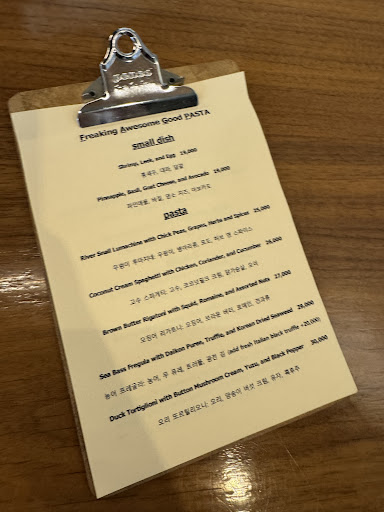 Freaking Awesome Good PASTA
small dish
Shrimp, Leek, and Egg 19,000
홍새우, 대파, 달걀
Pineapple, Basil, Goat Cheese, and Avocado 19,000
파인애플, 바질, 염소 치즈, 아보카도
pasta
River Snail Lumachine with Chick Peas, Grapes, Herbs and Spices 25,000
우렁이 루마치네: 우렁이, 병아리콩, 포도, 허브 앤 스파이스
Coconut Cream Spaghetti with Chicken, Coriander, and Cucumber 26,000
고수 스파게티: 고수, 코코넛밀크 크림, 닭가슴살, 오이
Brown Butter Rigatoni with Squid, Romaine, and Assorted Nuts 27,000
오징어 리가토니: 오징어, 브라운 버터, 로메인, 견과류
Sea Bass Fregula with Daikon Puree, Truffle, and Korean Dried Seaweed 28,000
농어 프레굴라: 농어, 무 퓨레, 트러플, 곱창 김 (add fresh Italian black truffle +25,000)
Duck Tortiglioni with Button Mushroom Cream, Yuzu, and Black Pepper 30,000
오리 또르틸리오니: 오리, 양송이 버섯 크림, 유자, 흑후추